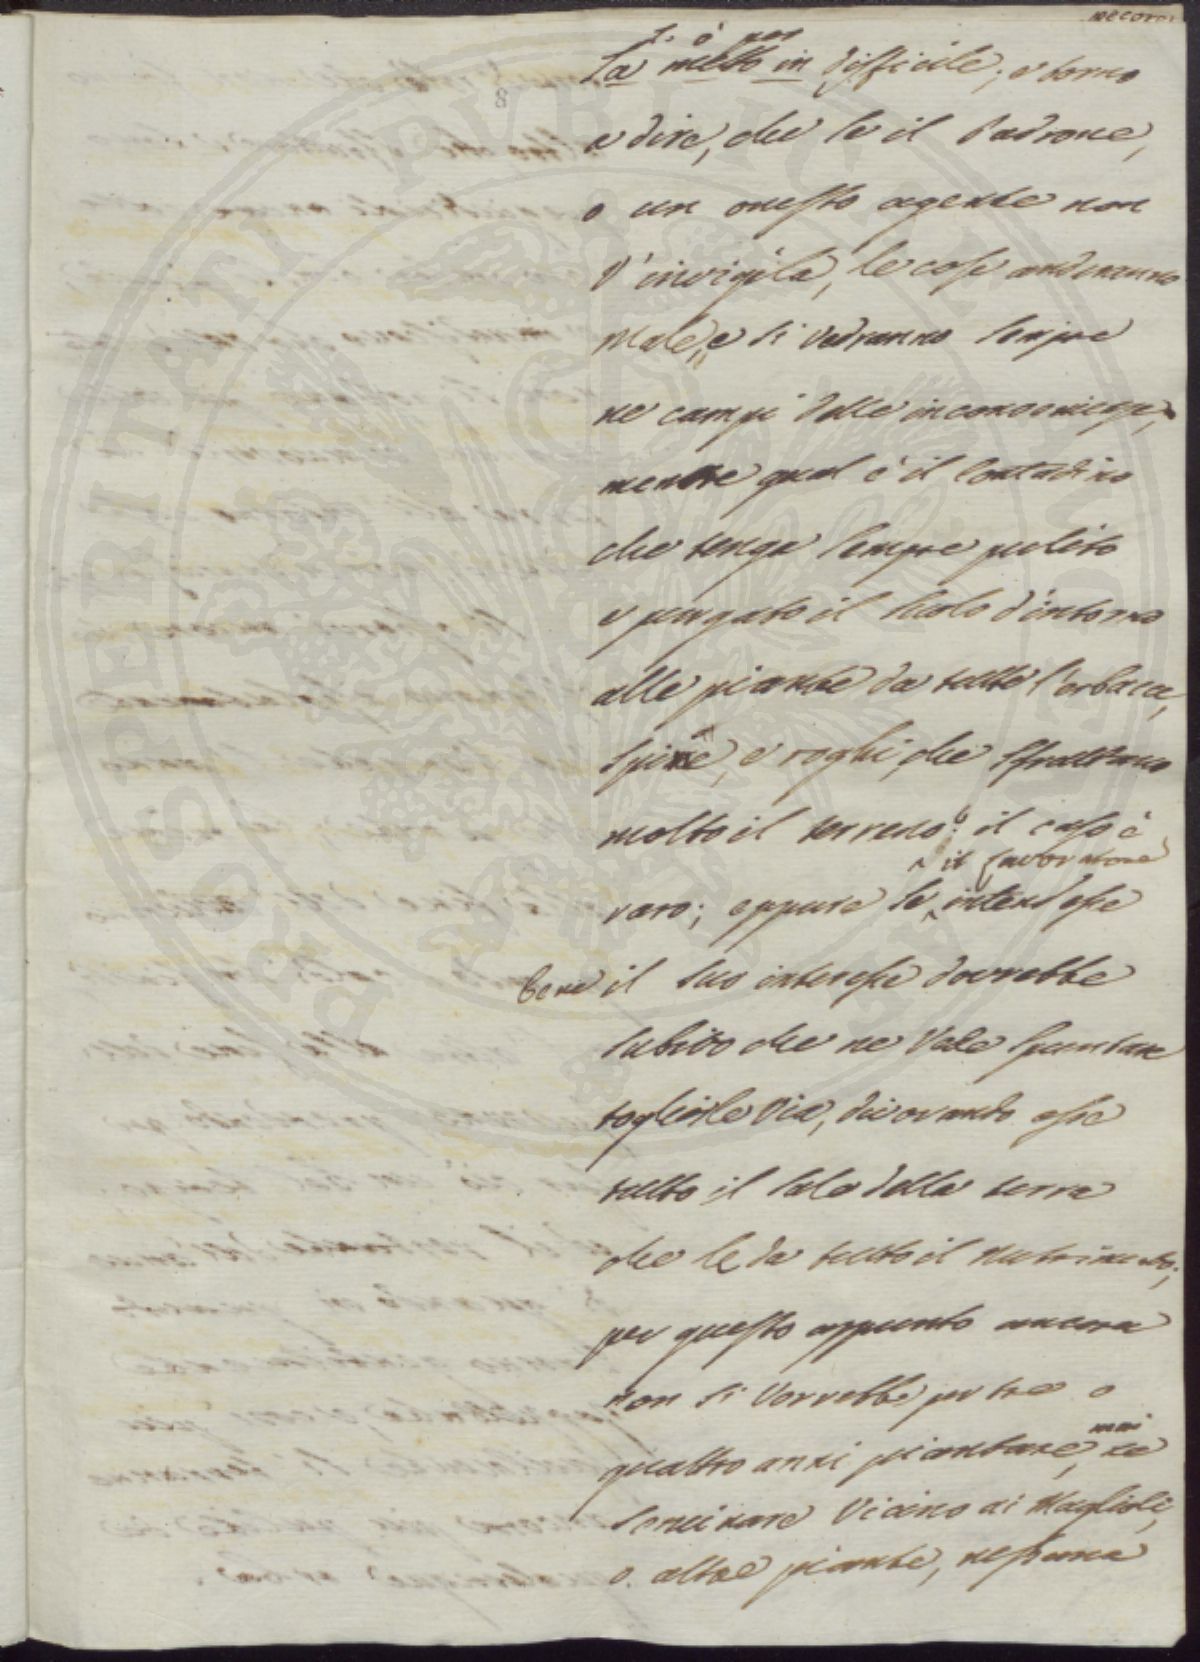 mecomi
L. è per
La metto in difficile; e torno
a dire, che se il Padrone,
o un onesto agente non
v'invigila, le cose anderanno
Male, e si vedranno sempre
ne campi delle
mentre qual è il Contadino
che tenga sempre pulito
e purgato il Suolo d'intorno
alle piante da tutte l'erbacce,
Spine, e roghi, che sfruttano
molto il terreno? il caso è
il Lavoratore
raro; eppure se intendesse
bene il suo interesse dovrebbe
subito che ne vede spuntare
toglierle via, divorando esse
tutto il Sale della terra
che le da tutto il nutrimento;
per questo appunto ancora
non si vorrebbe per tre o
mai
quattro anni piantare, ne
seminare vicino ai Maglioli,
o altre piante, nessuna
PROSPERITATI PUBLICAE AUGENDAE